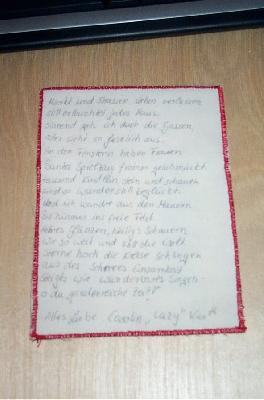 Markt und Strassen stehen verlassen
still erleuchtet jedes Haus
sinnend geh ich durch die Gassen
alles sieht so festlich aus.
An den Fenstern haben Frauen
Buntes Spielzeug fromm geschmückt
tausend Kindlein stehn und schauen
sind so wundervoll beglückt.
Und ich wandre aus den Mauern
Bis hinaus ins freie Feld
Hehres Glänzen, heilig's Schauern
Wie so weit und still die Welt
Sterne hoch die Kreise schlingen
aus des Schnees Einsamkeit
steigts wie wunderbares Singen
o du gnadenreiche Zeit!
Alles Liebe "Lazy"